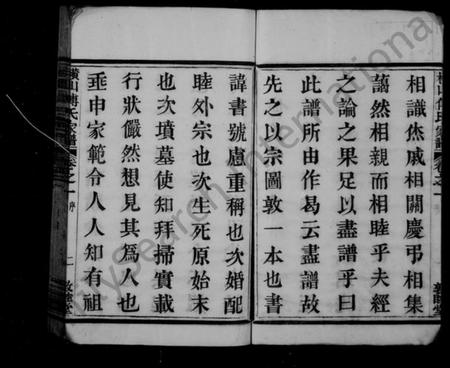 相識烋戚相關慶弔相集
藹然相親而相睦乎夫經
之論之果足以盡譜乎曰
此譜所由作曷云盡譜故
先之以宗圖敦一本也書
諱書號慮重稱也次婚配
睦外宗也次生死原始末
也次墳墓使知拜掃實載
行狀儼然想見其爲人也
垂申家範令人人知有祖
橫山傅氏家譜 卷之一 序 二